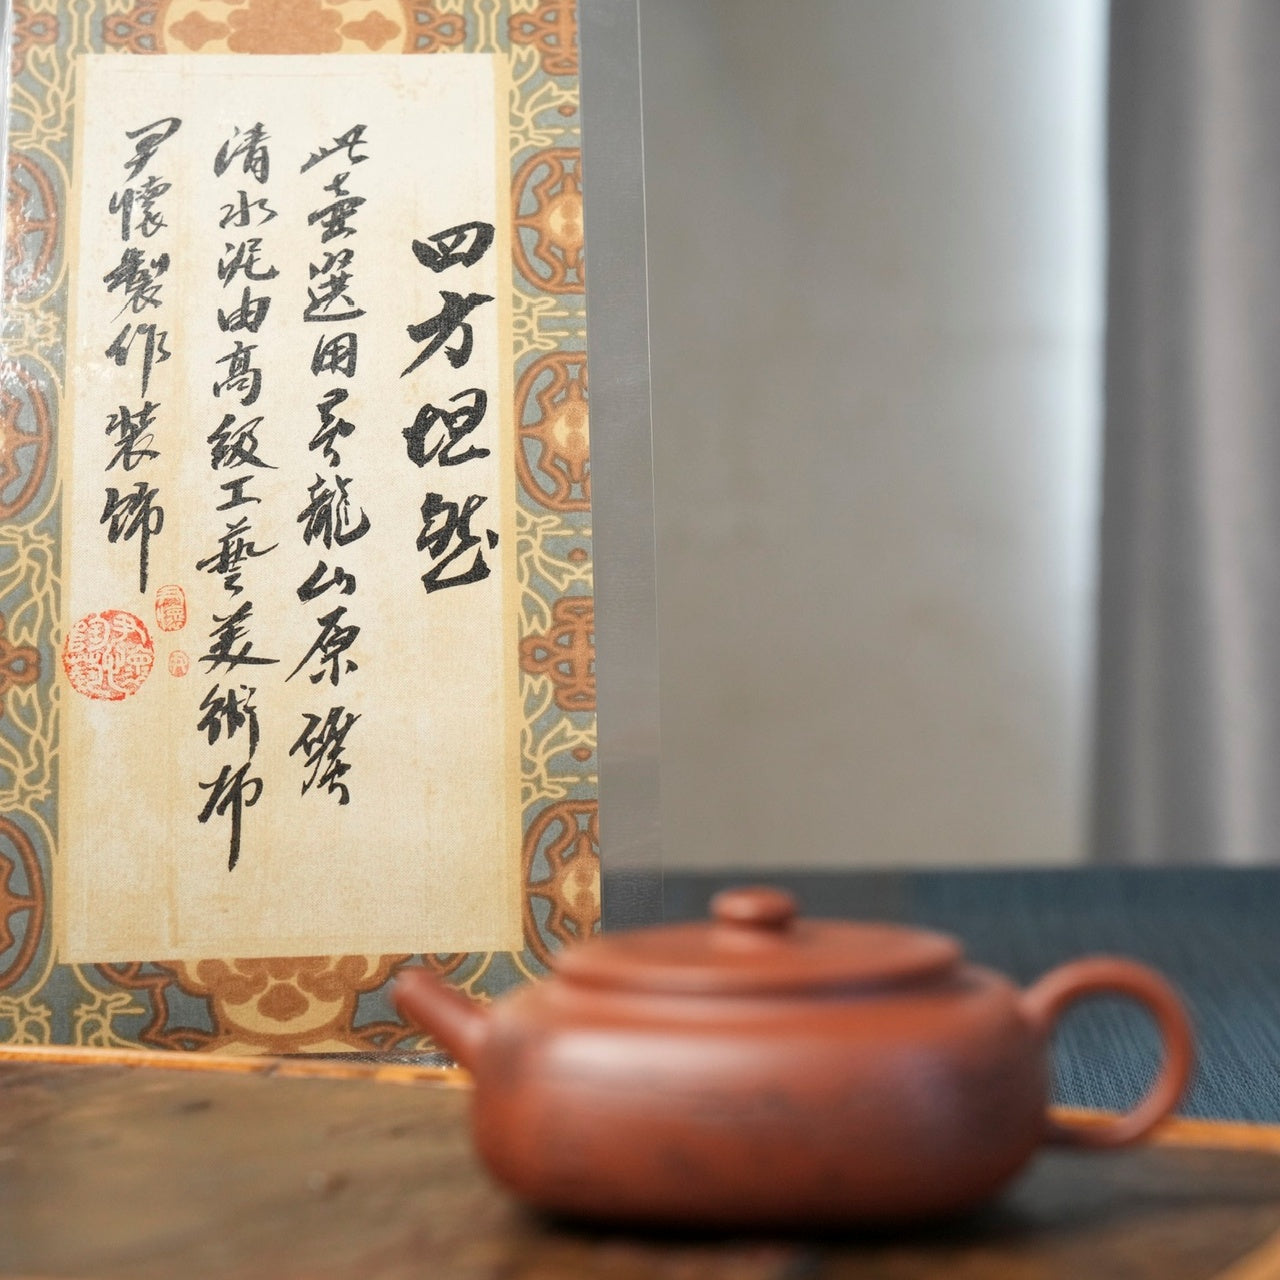 四方坦然
此壺選用黃龍山原礦
清水泥由高級工藝美術師
尹懷製作裝飾